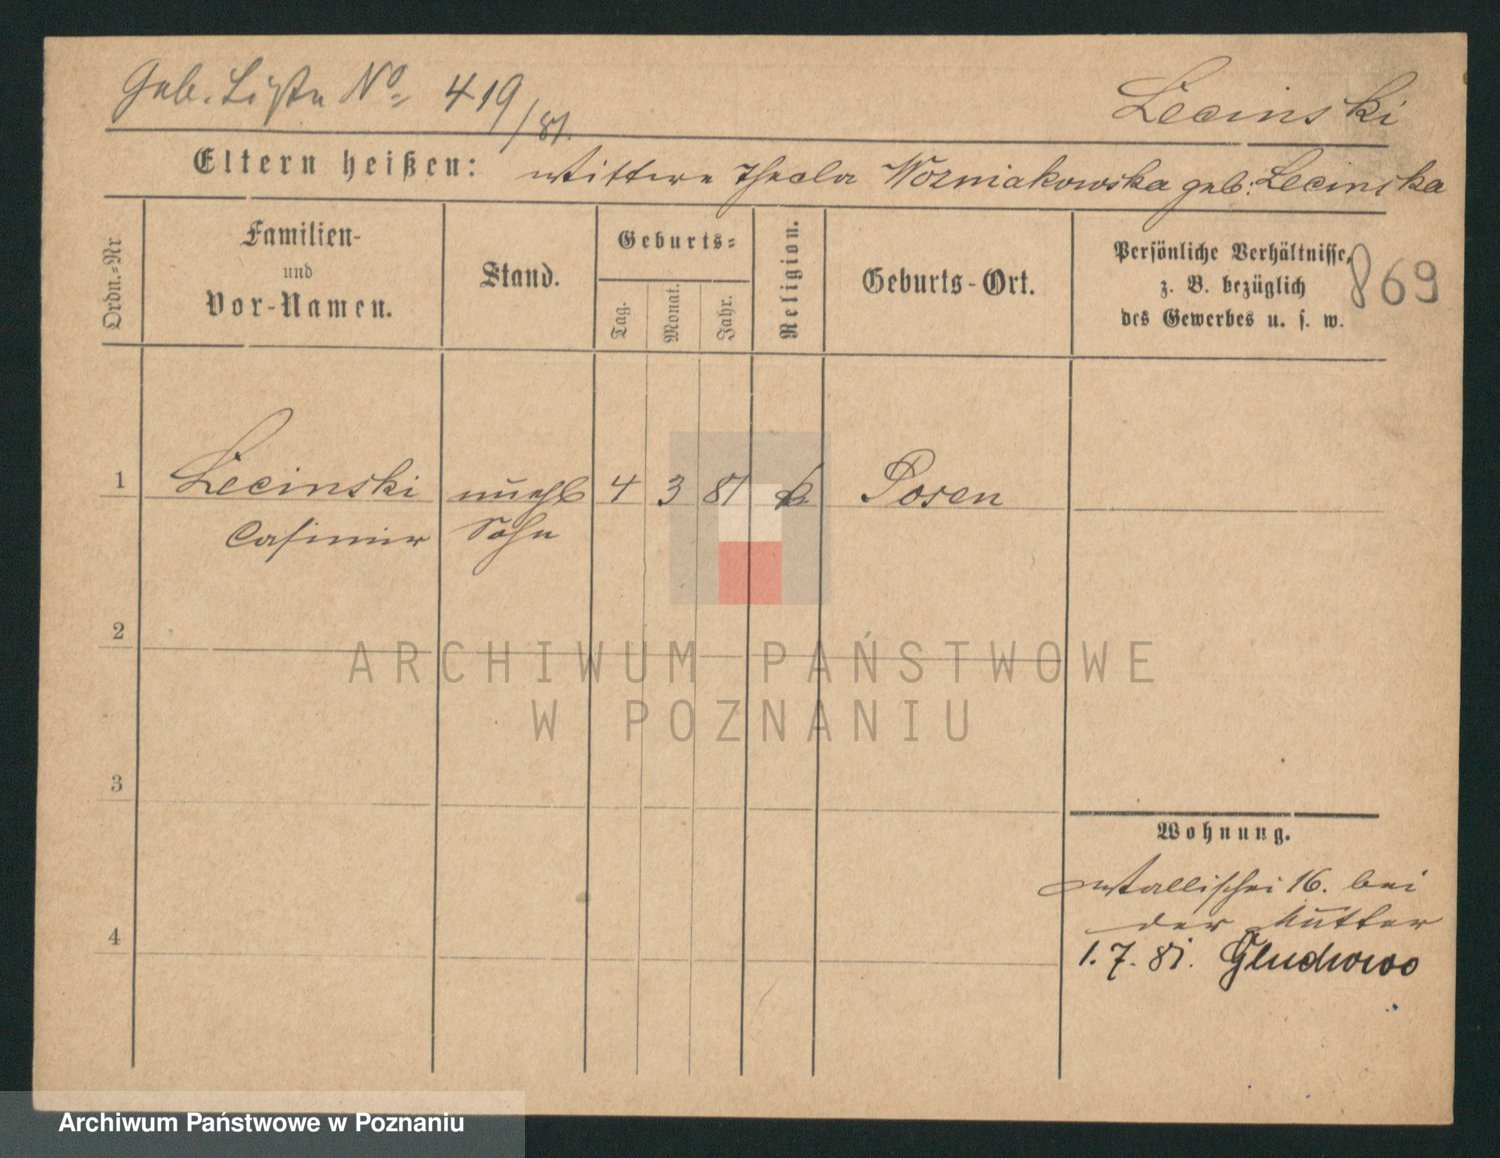 Geb. Liste No 419/81.
Lecinski
Eltern heißen: Wittwe Thecla Wozniakowska geb: Lecinska
Ordn.-Nr
Familien-
und
Vor-Namen.
Stand.
Geburts-
Tag.
Monat.
Jahr.
Religion.
Geburts-Ort.
Persönliche Verhältnisse,
z. B. bezüglich
des Gewerbes u. s. w.
869
1 Lecinski unehl 4 3 81 k Posen
Casimir Sohn
2
3
4
Wohnung.
Wallischei 16. bei
der Mutter
1.7.81. Gluchowo
ARCHIWUM PAŃSTWOWE
W POZNANIU
Archiwum Państwowe w Poznaniu